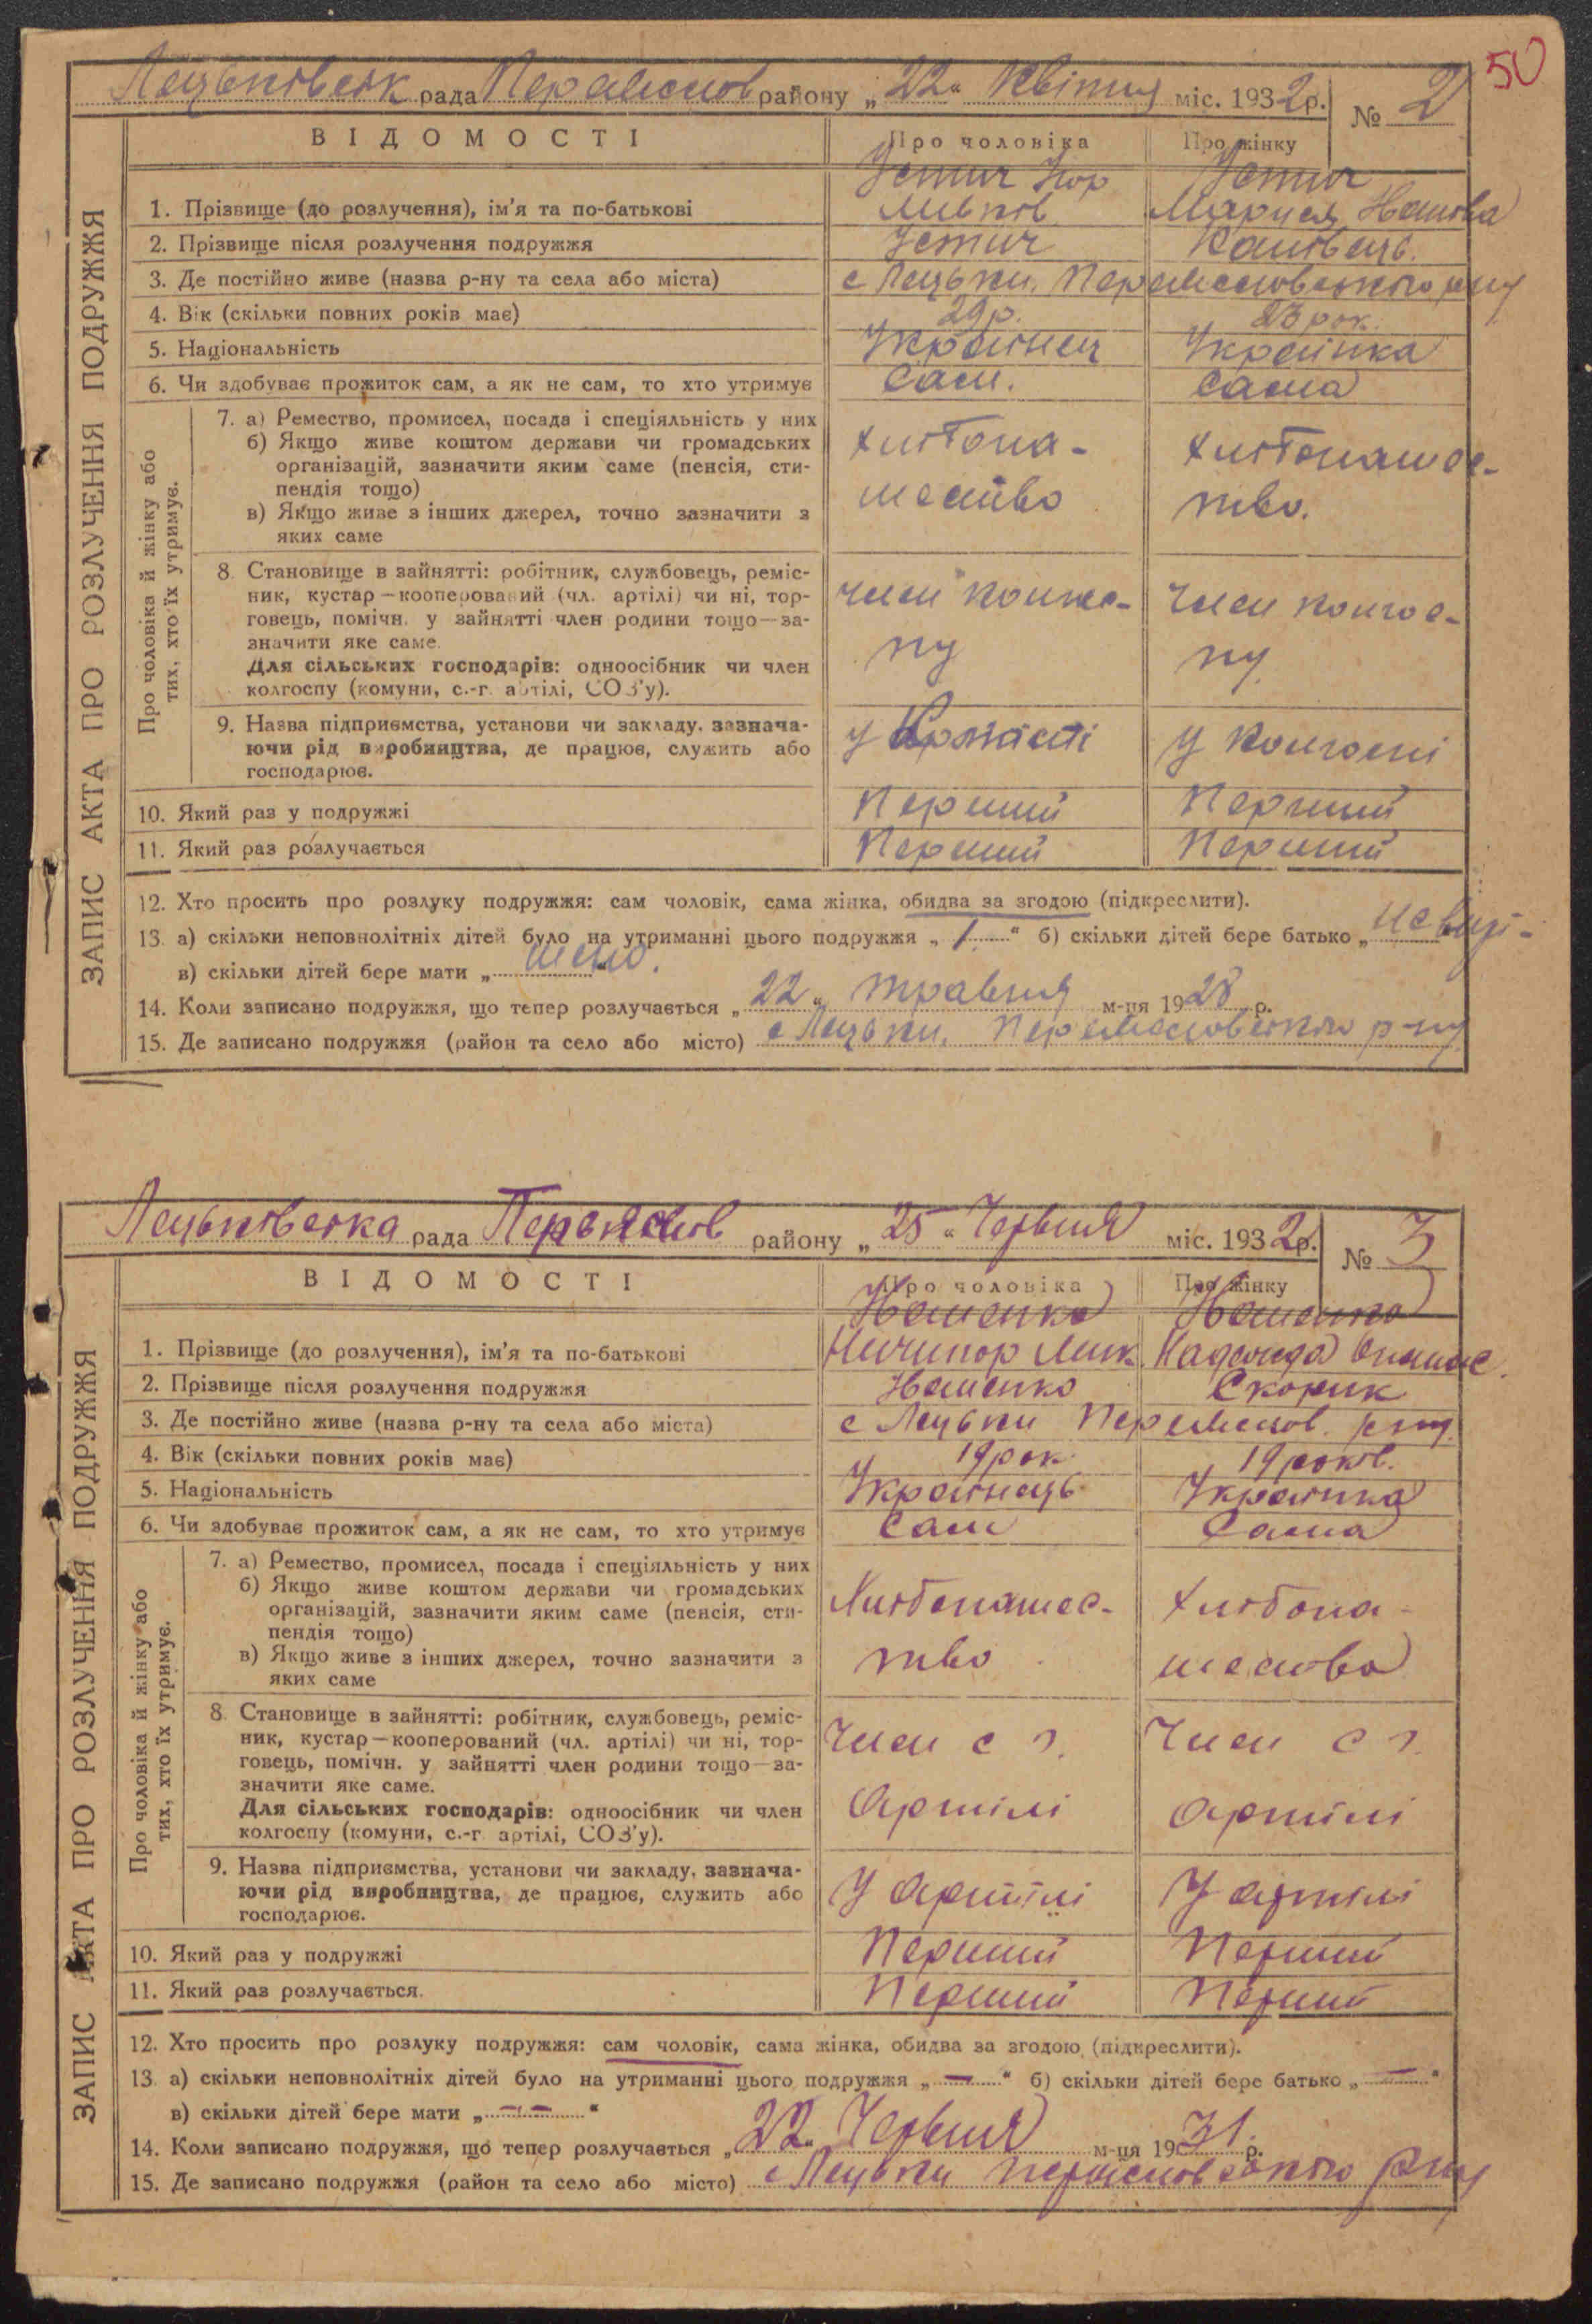 50
Лецьковськ рада Переяслов району „22“ Квітня міс. 1932 р. № 2
ЗАПИС АКТА ПРО РОЗЛУЧЕННЯ ПОДРУЖЖЯ
ВІДОМОСТІ Про чоловіка Про жінку
1. Прізвище (до розлучення), ім'я та по-батькові Устич
2. Прізвище після розлучення подружжя Устич
3. Де постійно живе (назва р-ну та села або міста) с Лецьки, Переяславського р-ну
4. Вік (скільки повних років має) 29 р. 23 рок.
5. Національність Українец Українка
6. Чи здобуває прожиток сам, а як не сам, то хто утримує Сам. Сама
Про чоловіка й жінку або тих, хто їх утримує.
7. а) Ремество, промисел, посада і спеціяльність у них
б) Якщо живе коштом держави чи громадських
організацій, зазначити яким саме (пенсія, сти-
пендія тощо)
в) Якщо живе з інших джерел, точно зазначити з
яких саме
хлібопа-
шество
хлібопашес-
тво.
8. Становище в зайнятті: робітник, службовець, реміс-
ник, кустар—кооперований (чл. артілі) чи ні, тор-
говець, помічн. у зайнятті член родини тощо—за-
значити яке саме.
Для сільських господарів: одноосібник чи член
колгоспу (комуни, с.-г. артілі, СОЗ'у).
член колгос-
пу
член колгос-
пу
9. Назва підприємства, установи чи закладу, зазнача-
ючи рід виробництва, де працює, служить або
господарює.
у колгоспі
10. Який раз у подружжі Перший Перший
11. Який раз розлучається Перший Перший
12. Хто просить про розлуку подружжя: сам чоловік, сама жінка, обидва за згодою (підкреслити).
13. а) скільки неповнолітніх дітей було на утриманні цього подружжя „1“ б) скільки дітей бере батько „не вирі-
в) скільки дітей бере мати „шено.
14. Коли записано подружжя, що тепер розлучається „22“ травня м-ця 1928 р.
15. Де записано подружжя (район та село або місто) с Лецьки, Переяславського р-ну
Лецьківська рада Переяслов району „25“ Червня міс. 1932 р. № 3
ЗАПИС АКТА ПРО РОЗЛУЧЕННЯ ПОДРУЖЖЯ
ВІДОМОСТІ Про чоловіка Про жінку
1. Прізвище (до розлучення), ім'я та по-батькові Ничипор Мик. Надежда Опанас.
2. Прізвище після розлучення подружжя Скорик
3. Де постійно живе (назва р-ну та села або міста) с Лецьки Переяслов. р-ну.
4. Вік (скільки повних років має) 19 рок. 19 років.
5. Національність Українець Українка
6. Чи здобуває прожиток сам, а як не сам, то хто утримує Сам Сама
Про чоловіка й жінку або тих, хто їх утримує.
7. а) Ремество, промисел, посада і спеціяльність у них
б) Якщо живе коштом держави чи громадських
організацій, зазначити яким саме (пенсія, сти-
пендія тощо)
в) Якщо живе з інших джерел, точно зазначити з
яких саме
Хлібопашес-
тво
хлібопа-
шество
8. Становище в зайнятті: робітник, службовець, реміс-
ник, кустар—кооперований (чл. артілі) чи ні, тор-
говець, помічн. у зайнятті член родини тощо—за-
значити яке саме.
Для сільських господарів: одноосібник чи член
колгоспу (комуни, с.-г. артілі, СОЗ'у).
Член с г.
Артілі
Член с г.
Артілі
9. Назва підприємства, установи чи закладу, зазнача-
ючи рід виробництва, де працює, служить або
господарює.
У Артілі У артілі
10. Який раз у подружжі Перший Перший
11. Який раз розлучається. Перший Перший
12. Хто просить про розлуку подружжя: сам чоловік, сама жінка, обидва за згодою (підкреслити).
13. а) скільки неповнолітніх дітей було на утриманні цього подружжя „—“ б) скільки дітей бере батько „—“
в) скільки дітей бере мати „—“
14. Коли записано подружжя, що тепер розлучається „22“ Червня м-ця 1931 р.
15. Де записано подружжя (район та село або місто) с Лецьки Переясловського р-ну